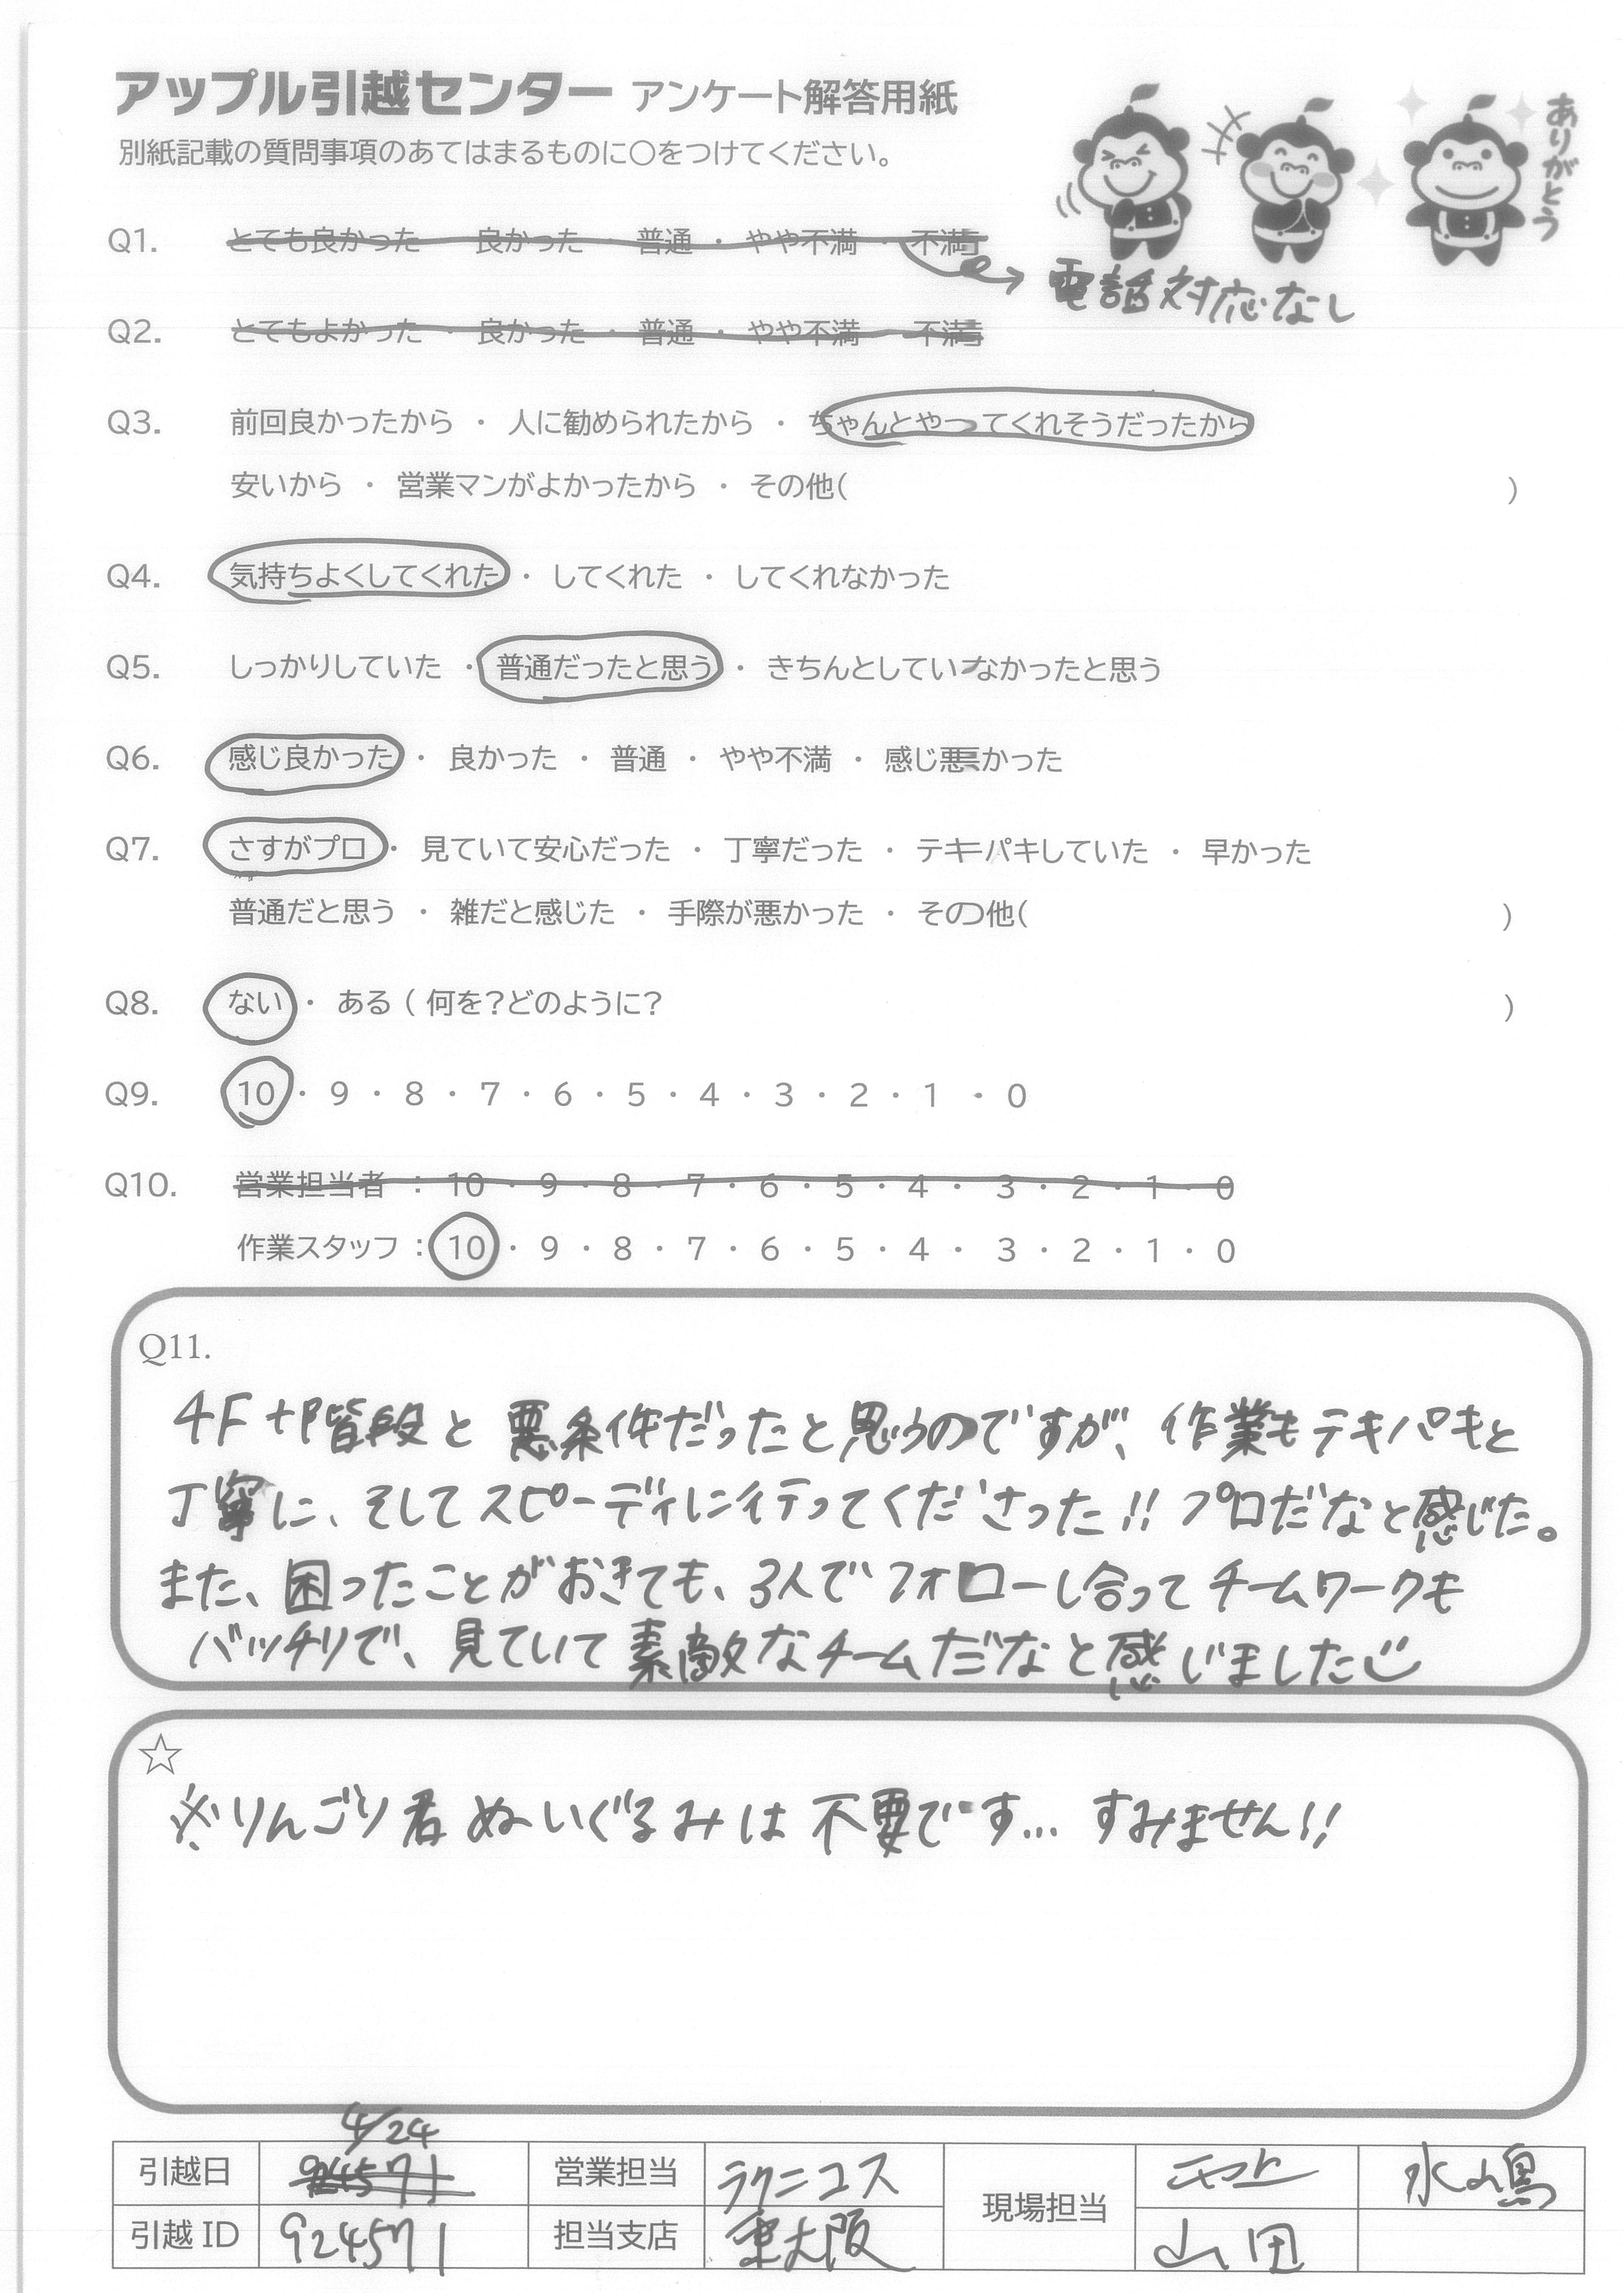 アップル引越センター アンケート解答用紙
別紙記載の質問事項のあてはまるものに○をつけてください。
ありがとう
Q1. とても良かった ・ 良かった ・ 普通 ・ やや不満 ・ 不満
電話対応なし
Q2. とてもよかった ・ 良かった ・ 普通 ・ やや不満 ・ 不満
Q3. 前回良かったから ・ 人に勧められたから ・ ちゃんとやってくれそうだったから
安いから ・ 営業マンがよかったから ・ その他( )
Q4. 気持ちよくしてくれた ・ してくれた ・ してくれなかった
Q5. しっかりしていた ・ 普通だったと思う ・ きちんとしていなかったと思う
Q6. 感じ良かった ・ 良かった ・ 普通 ・ やや不満 ・ 感じ悪かった
Q7. さすがプロ ・ 見ていて安心だった ・ 丁寧だった ・ テキパキしていた ・ 早かった
普通だと思う ・ 雑だと感じた ・ 手際が悪かった ・ その他( )
Q8. ない ・ ある ( 何を?どのように? )
Q9. 10 ・ 9 ・ 8 ・ 7 ・ 6 ・ 5 ・ 4 ・ 3 ・ 2 ・ 1 ・ 0
Q10. 営業担当者 : 10 ・ 9 ・ 8 ・ 7 ・ 6 ・ 5 ・ 4 ・ 3 ・ 2 ・ 1 ・ 0
作業スタッフ : 10 ・ 9 ・ 8 ・ 7 ・ 6 ・ 5 ・ 4 ・ 3 ・ 2 ・ 1 ・ 0
Q11.
4F+階段と悪条件だったと思うのですが、作業もテキパキと
丁寧に、そしてスピーディに行ってくださった!! プロだなと感じた。
また、困ったことがおきても、3人でフォローし合ってチームワークも
バッチリで、見ていて素敵なチームだなと感じました
☆
※りんごり君ぬいぐるみは不要です… すみません!!
4/24
引越日 924571 営業担当 ラクニコス 現場担当 水嶋
引越ID 924571 担当支店 東大阪 山田